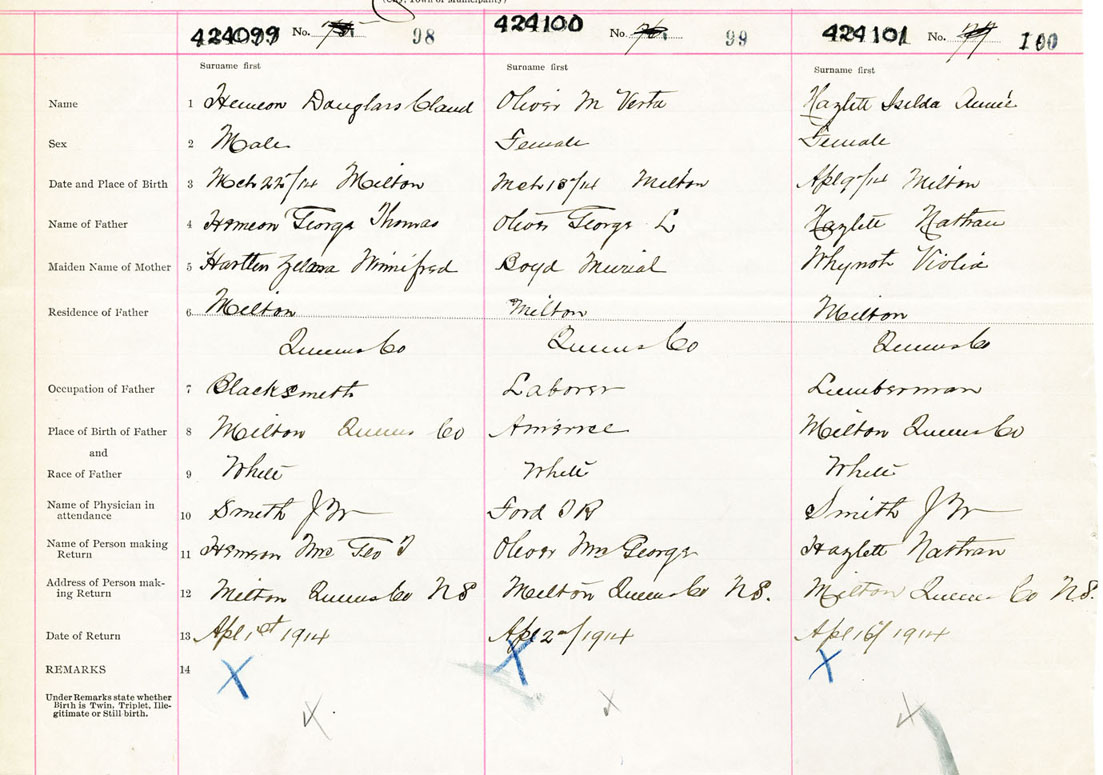 (City, Town or Municipality)
424099 No. 98 424100 No. 99 424101 No. 100
Surname first Surname first Surname first
Name 1 Hemeon Douglass Claud Oliver M Verta Hazlett Iselda Annie
Sex 2 Male Female Female
Date and Place of Birth 3 Mch 22nd/14 Milton Mch 18/14 Milton Apl 9/14 Milton
Name of Father 4 Hemeon George Thomas Oliver George L Hazlett Nathan
Maiden Name of Mother 5 Hartlen Zelma Winnifred Boyd Murial Whynot Violia
Residence of Father 6 Milton Milton Milton
Queens Co Queens Co Queens Co
Occupation of Father 7 Blacksmith Laborer Lumberman
Place of Birth of Father 8 Milton Queens Co Milton Queens Co
and
Race of Father 9 White White White
Name of Physician in
attendance 10 Smith J W Ford T R Smith J W
Name of Person making
Return 11 Hemeon Mrs Geo T Oliver Mrs George Hazlett Nathan
Address of Person mak-
ing Return 12 Milton Queens Co N S Milton Queens Co N.S. Milton Queens Co N.S.
Date of Return 13 Apl 1st 1914 Apl 2nd/1914 Apl 16/1914
REMARKS 14 X X X
Under Remarks state whether
Birth is Twin, Triplet, Ille-
gitimate or Still birth.